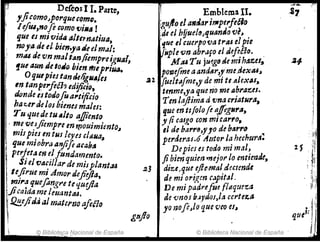 Deseos I I. Parte,
y si como, porque como,
Iesus, no se como viua!
que es mi vida alternatiua,
no ya de el bien, ya de el mal:
mas de vn mal tan siempre igual,
que aun de todo bien me priua.
O que pies tan desiguales 22
en tan perfecto edificio,
donde es todo su artificio
hazer de los bienes males:
Tu que de tu alto assiento
me ves siempre en mouimiento,
mis pies en tus leyes claua,
que mi obra ansi se acaba
perfeta en el fundamento.
Si el vacillar de mis plantas 23
te firue mi Amor de fiesta,
mira que sangre te questa
si caida me leuantas.
Que si dà al materno afecto
gusto
Emblema II. 87
gusto el andar imperfecto
de el hijuelo, quando vè,
que el cuerpo va tras el pie
suple vn abraço el defecto.
Mas Tu juego de mi hazes, 24
ponesme a andar, y me dexas,
sueltasme, y de mi te alexas,
tenme, ya que no me abrazes.
Ten lastima à vna criatura,
que en ti solo se assegura,
y si caigo con mi carro,
el de barro, y yo de barro
perderas, ò Autor la hechura.
De pies es todo mi mal, 25
si bien quien mejor lo entiende,
dize, que este mal deciende
de mi origen capital.
De mi padre fue flaqueza
de vnos baydos, la certeza
yo no se, lo que veo es,
que
© Biblioteca Nacional de España
© Biblioteca Nacional de España